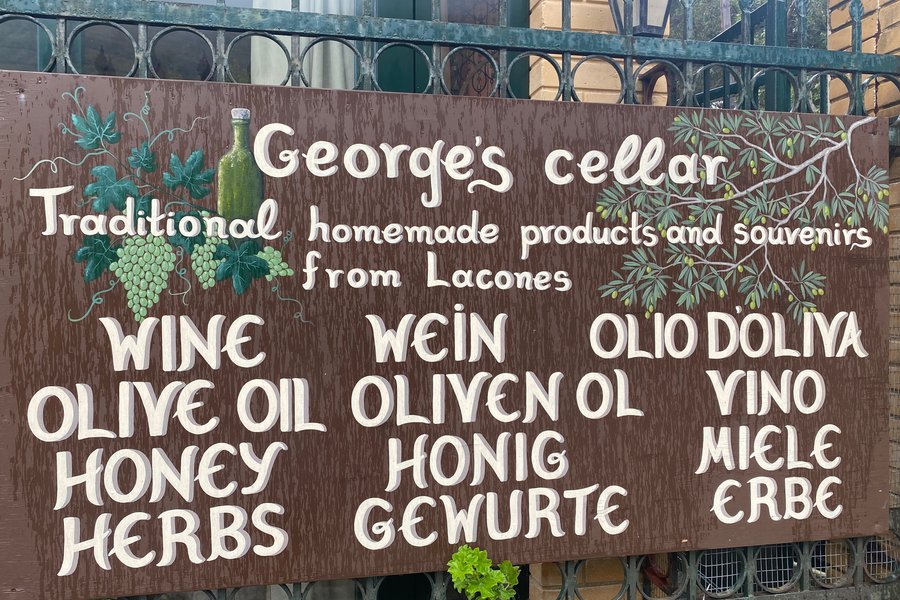 George's cellar
Traditional homemade products and souvenirs
from Lacones
WINE
OLIVE OIL
HONEY
HERBS
WEIN
OLIVEN OL
HONIG
GEWURTE
OLIO D'OLIVA
VINO
MIELE
ERBE